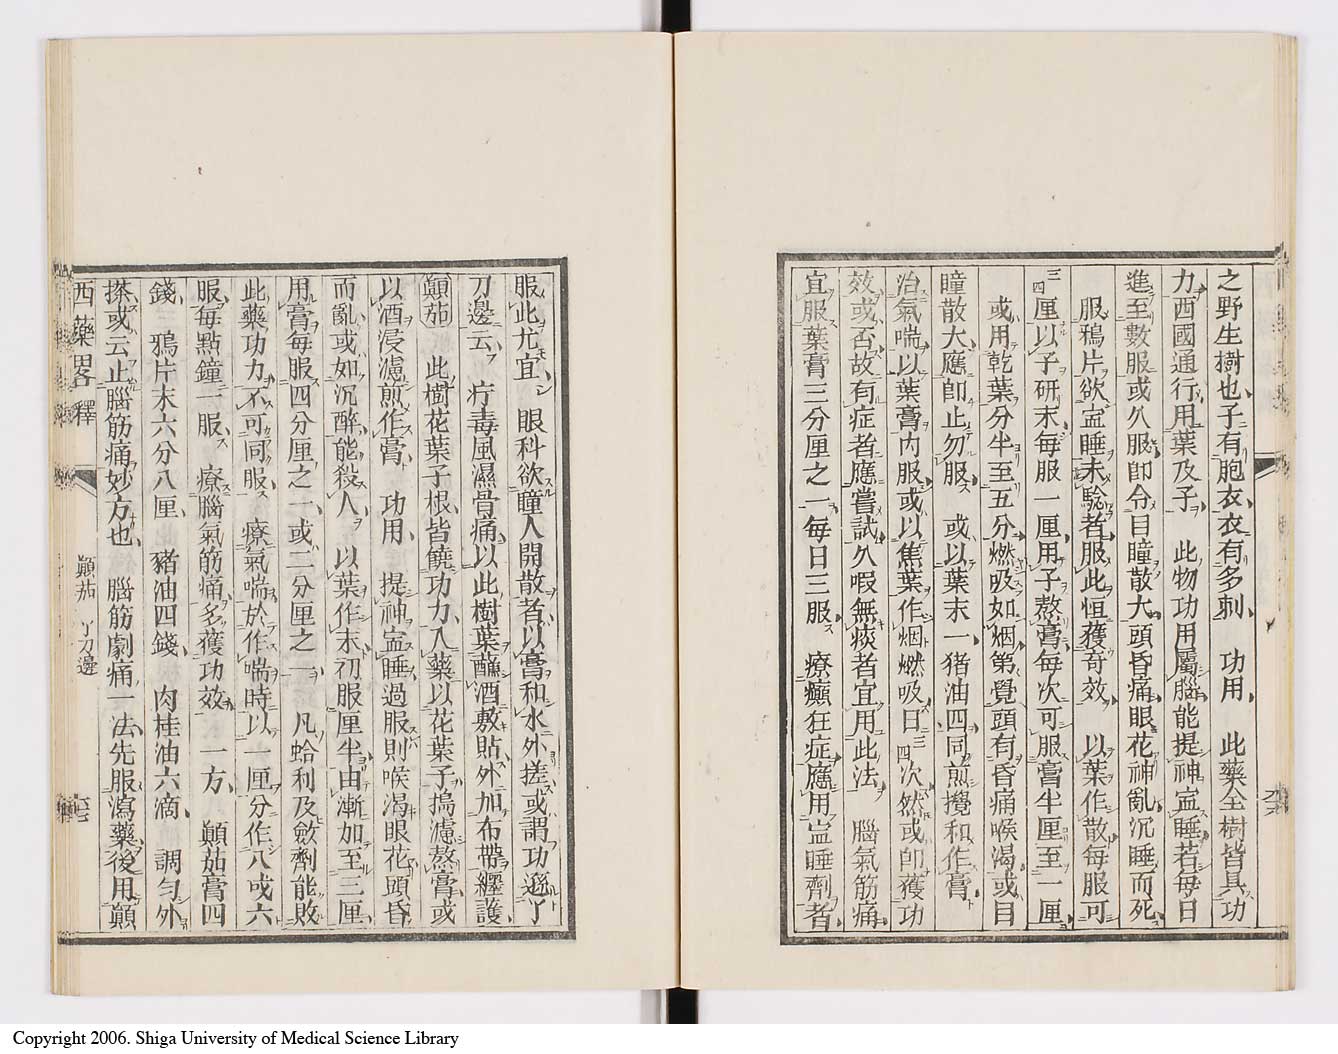 之野生樹也子有胞衣衣有多刺　功用　此藥全樹皆具功
力西國通行用葉及子　此物功用屬腦能提神寍睡若每日
進至數服或久服卽令目瞳散大頭昏痛眼花神亂沉睡而死
服鴉片欲寍睡未驗者服此恒獲奇效　以葉作散每服可
三四厘以子研末每服一厘用子熬膏每次可服膏半厘至一厘
或用乾葉分半至五分燃吸如烟第覺頭有昏痛喉渴或目
瞳散大應卽止勿服　或以葉末一猪油四同煎攪和作膏
治氣喘以葉膏內服或以焦葉作烟燃吸日三四次然或卽獲功
效或否故有症者應嘗試久咳無痰者宜用此法　腦氣筋痛
宜服葉膏三分厘之一每日三服　療癲狂症應用寍睡劑者
服此尤宜　眼科欲瞳人開散者以膏和水外搓或謂功遜丫
刀邊云　疔毒風濕骨痛以此樹葉蘸酒敷貼外加布帶纒護
顚茄　此樹花葉子根皆饒功力入藥以花葉子搗濾熬膏或
以酒浸濾煎作膏　功用　提神寍睡過服則喉渴眼花頭昏
而亂或如沉醉能殺人　以葉作末初服厘半由漸加至三厘
用膏每服四分厘之一或二分厘之一　凡蛤利及斂劑能敗
此藥功力不可同服　療氣喘於作喘時以一厘分作八或六
服每點鐘一服　療腦氣筋痛多獲功效　一方　顚茄膏四
錢　鴉片末六分八厘　豬油四錢　肉桂油六滴　調勻外
搽或云止腦筋痛妙方也　腦筋劇痛一法先服瀉藥後用顚
西藥畧釋　顚茄　丫刀邊
Copyright 2006. Shiga University of Medical Science Library